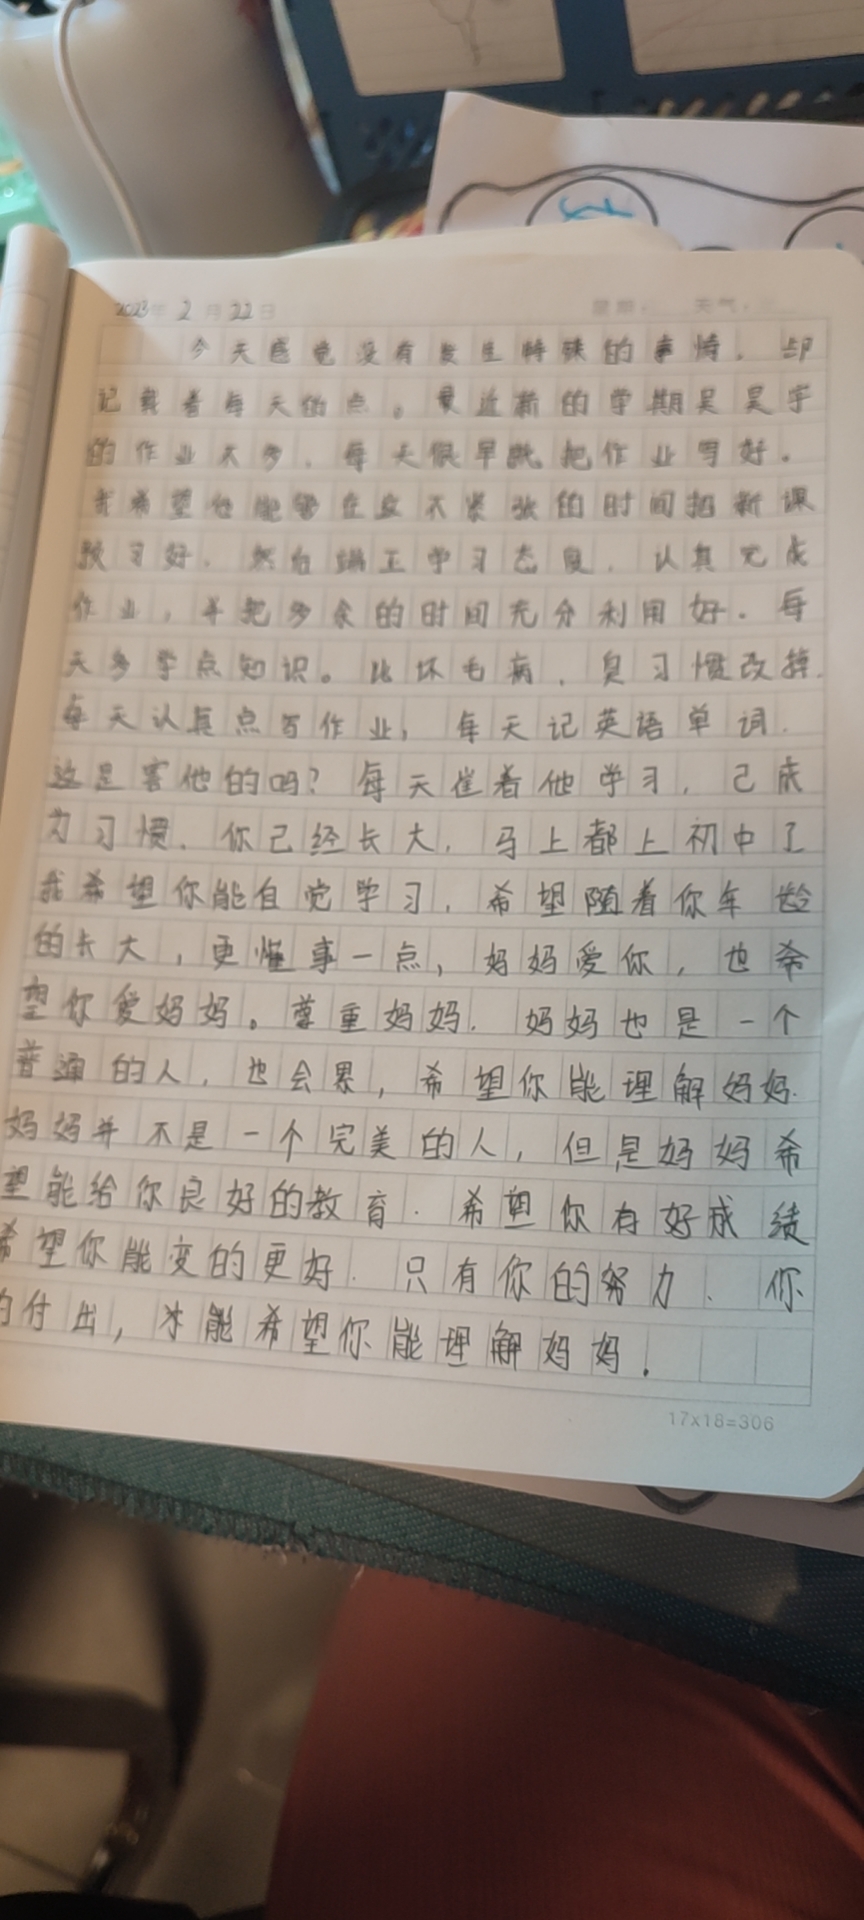 2023年 2 月 22 日 星期： 天气：
今天感觉没有发生特殊的事情. 却
记载着每天的点。最近新的学期吴昊宇
的作业不多. 每天很早就把作业写好。
我希望他能够在这不紧张的时间把新课
预习好. 然后端正学习态度. 认真完成
作业, 并把多余的时间充分利用好. 每
天多学点知识。比坏毛病. 复习惯改掉.
每天认真点写作业, 每天记英语单词.
这是害他的吗? 每天崔着他学习. 已成
为习惯. 你已经长大. 马上都上初中了
我希望你能自觉学习. 希望随着你年龄
的长大, 更懂事一点, 妈妈爱你, 也希
望你爱妈妈。尊重妈妈. 妈妈也是一个
普通的人, 也会累, 希望你能理解妈妈.
妈妈并不是一个完美的人, 但是妈妈希
望能给你良好的教育. 希望你有好成绩
希望你能变的更好. 只有你的努力. 你
的付出, 才能希望你能理解妈妈.
17x18=306